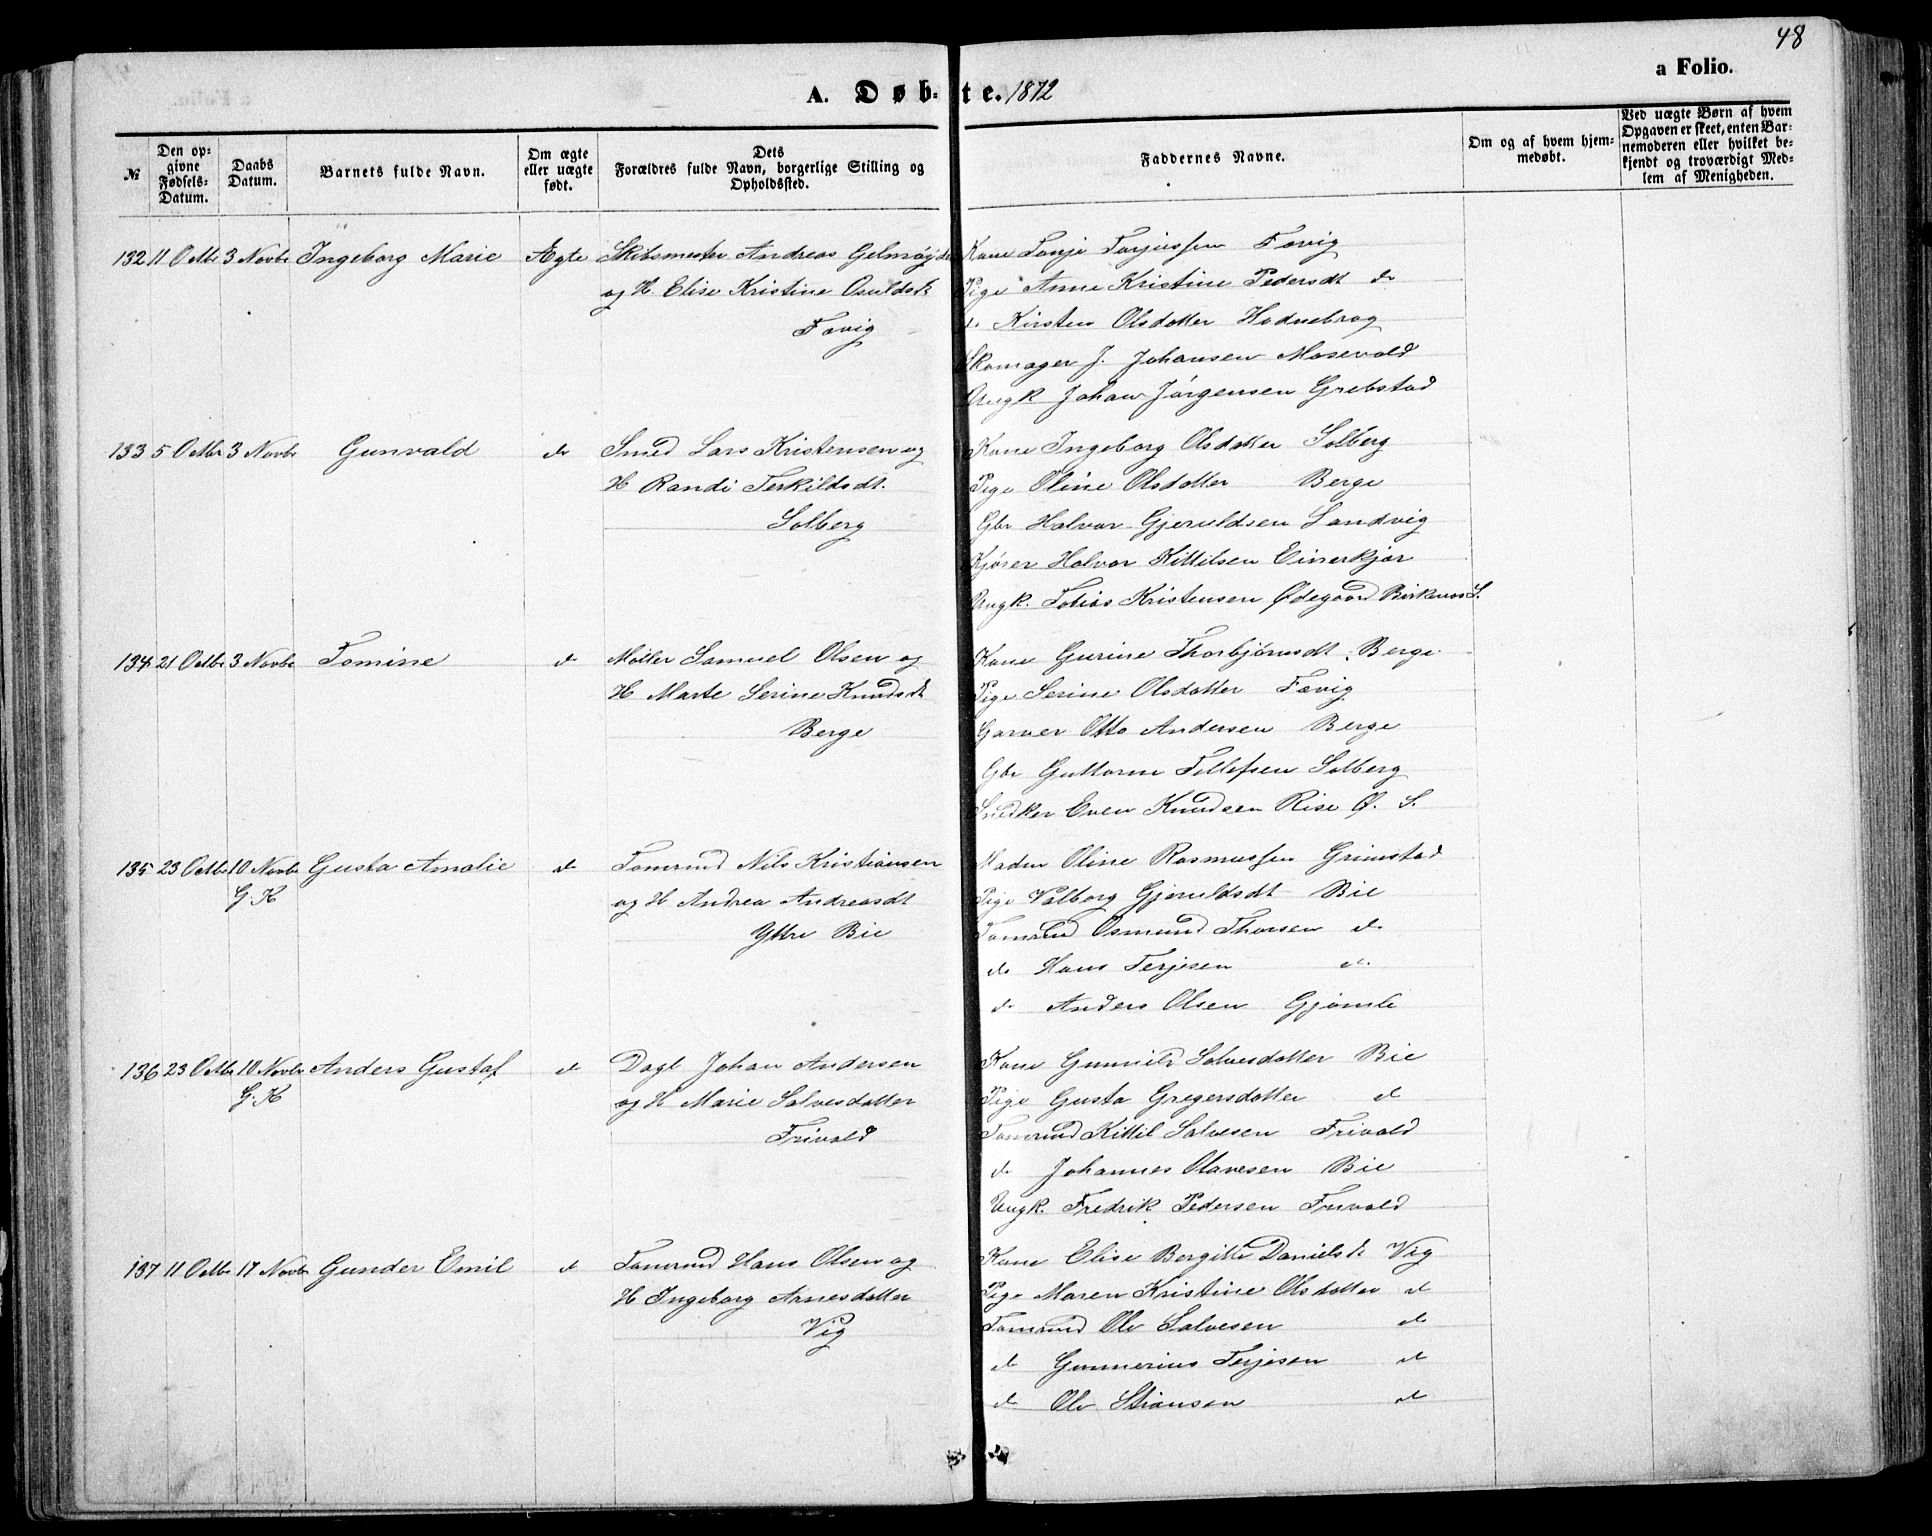 48
a Folio.
A. Døb- te. 1872
№
Den opgivne Fødsels-Datum.
Daabs Datum.
Barnets fulde Navn.
Om ægte eller uægte født.
Dets Forældres fulde Navn, borgerlige Stilling og Opholdssted.
Faddernes Navne.
Om og af hvem hjemmedøbt.
Ved uægte Børn af hvem Opgaven er skeet, enten Barnemoderen eller hvilket bekjendt og troværdigt Medlem af Menigheden.
132 11 Octbr 3 Novbr Ingeborg Marie Ægte Skibsmester Andreas Gelmøyde Kone Tonje Torjussen Fævig
og H. Elise Kristine Osuldsdt Pige Anne Kristine Pedersdt do
Fævig do Kirsten Olsdatter Hodnebrog
Skomager J. Johansen Mosevold
Ungk Johan Jørgensen Grebstad
133 5 Octbr 3 Novbr Gunvald do Smed Lars Kristensen og Kone Ingeborg Olsdatter Solberg
H Randi Terkildsdt. Pige Oline Olsdatter Berge
Solberg Gbr Halvor Gjeruldsen Landvig
Kjører Halvor Kittilsen Einerkjær
Ungk. Tobias Kristensen Ødegaard Birkenæs S.
134 21 Octbr 3 Novbr Tomine do Møller Samuel Olsen og Kone Gurine Thorbjørnsdt Berge
H Marte Serine Knudsdt Pige Serine Olsdatter Fævig
Berge Garver Otto Andersen Berge
Gbr Guttorm Tellefsen Solberg
Snedker Even Knudsen Rise Ø. S.
135 23 Octbr 10 Novbr Gusta Amalie do Tømrmd Nils Kristiansen Madm Oline Rasmussen Grimstad
G. K og H Andrea Andreasdt Pige Valborg Gjeruldsdt Bie
Yttre Bie Tømrmd Osmund Thorsen do
do Hans Terjesen do
do Anders Olsen Gjømle
136 23 Octbr 10 Novbr Anders Gustaf do Dagl Johan Andersen Kone Gunnild Salvesdatter Bie
G. K og H Marie Salvesdatter Pige Gusta Gregersdatter do
Frivold Tømrmd Kittil Salvesen Frivold
do Johannes Olavesen Bie
Ungk. Fredrik Pedersen Frivold
137 11 Octbr 17 Novbr Gunder Emil do Tømrmd Hans Olsen og Kone Elise Bergitte Danielsdt Vig
H Ingeborg Arnesdatter Pige Maren Kristine Olsdatter do
Vig Tømrmd Ole Salvesen do
do Gunnerius Terjesen do
do Ole Stiansen do